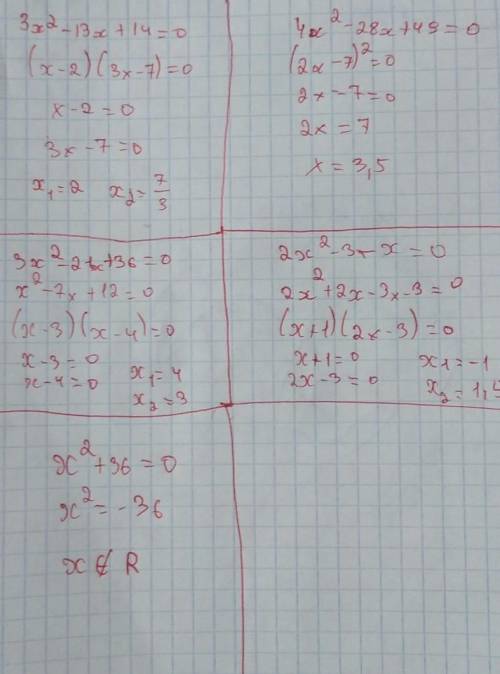 3x² - 13x + 14 = 0
(x - 2)(3x - 7) = 0
x - 2 = 0
3x - 7 = 0
x₁ = 2 x₂ = 7/3
4x² - 28x + 49 = 0
(2x - 7)² = 0
2x - 7 = 0
2x = 7
x = 3,5
3x² - 21x + 36 = 0
x² - 7x + 12 = 0
(x - 3)(x - 4) = 0
x - 3 = 0
x - 4 = 0
x₁ = 4
x₂ = 3
2x² - 3 - x = 0
2x² + 2x - 3x - 3 = 0
(x + 1)(2x - 3) = 0
x + 1 = 0
2x - 3 = 0
x₁ = -1
x₂ = 1,5
x² + 36 = 0
x² = -36
x ∉ R